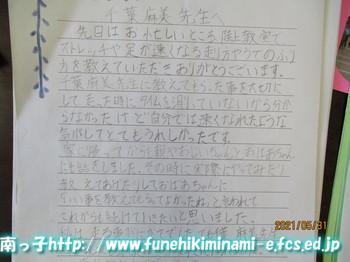 千葉麻美先生へ
先日はお忙しいところ陸上教室で
ストレッチや足が速くなる走り方やうでのふり
方を教えていただきありがとうございます。
千葉麻美先生に教えてもらった事を大切に
して走った時にタイムを測していないから分から
なかったけど自分では速くなれたような
気がしてとてもうれしかったです。
家に帰ってから
に話をしました。その時に
教えてあげたりしておばあちゃんに
いい事を教えてもらってよかったね。と言われて
これからも続けていきたいと思いました。
2021/05/31
南っ子http://www.funehikiminami-e.fcs.ed.jp